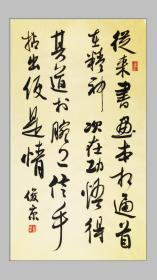 從来書畫本相通首
在精神次在功悟得
其道於腕下信手
拈出便是情
俊京